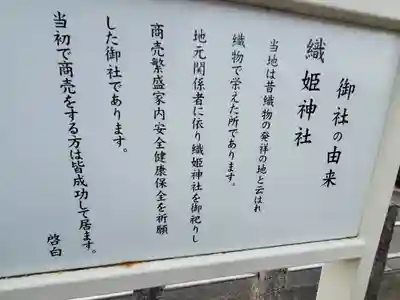 御社の由来
織姫神社
当地は昔織物の発祥の地と云はれ
織物で栄えた所であります。
地元関係者に依り織姫神社を御祀りし
商売繁盛家内安全健康保全を祈願
した御社であります。
当初で商売をする方は皆成功して居ます。
啓白